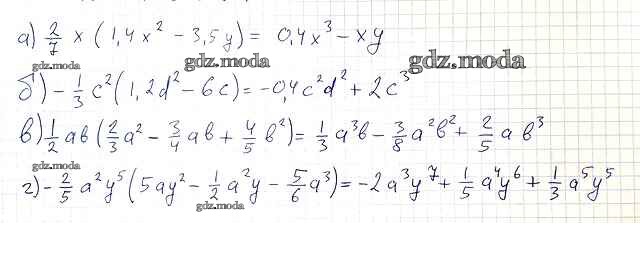 а) 2/7 x (1,4x² - 3,5y) = 0,4x³ - xy
gdz.moda gdz.moda gdz.moda
б) - 1/3 c² (1,2d² - 6c) = -0,4c²d² + 2c³
в) 1/2 ab (2/3 a² - 3/4 ab + 4/5 b²) = 1/3 a³b - 3/8 a²b² + 2/5 ab³
gdz.moda
г) - 2/5 a²y⁵ (5ay² - 1/2 a²y - 5/6 a³) = -2a³y⁷ + 1/5 a⁴y⁶ + 1/3 a⁵y⁵
gdz.moda